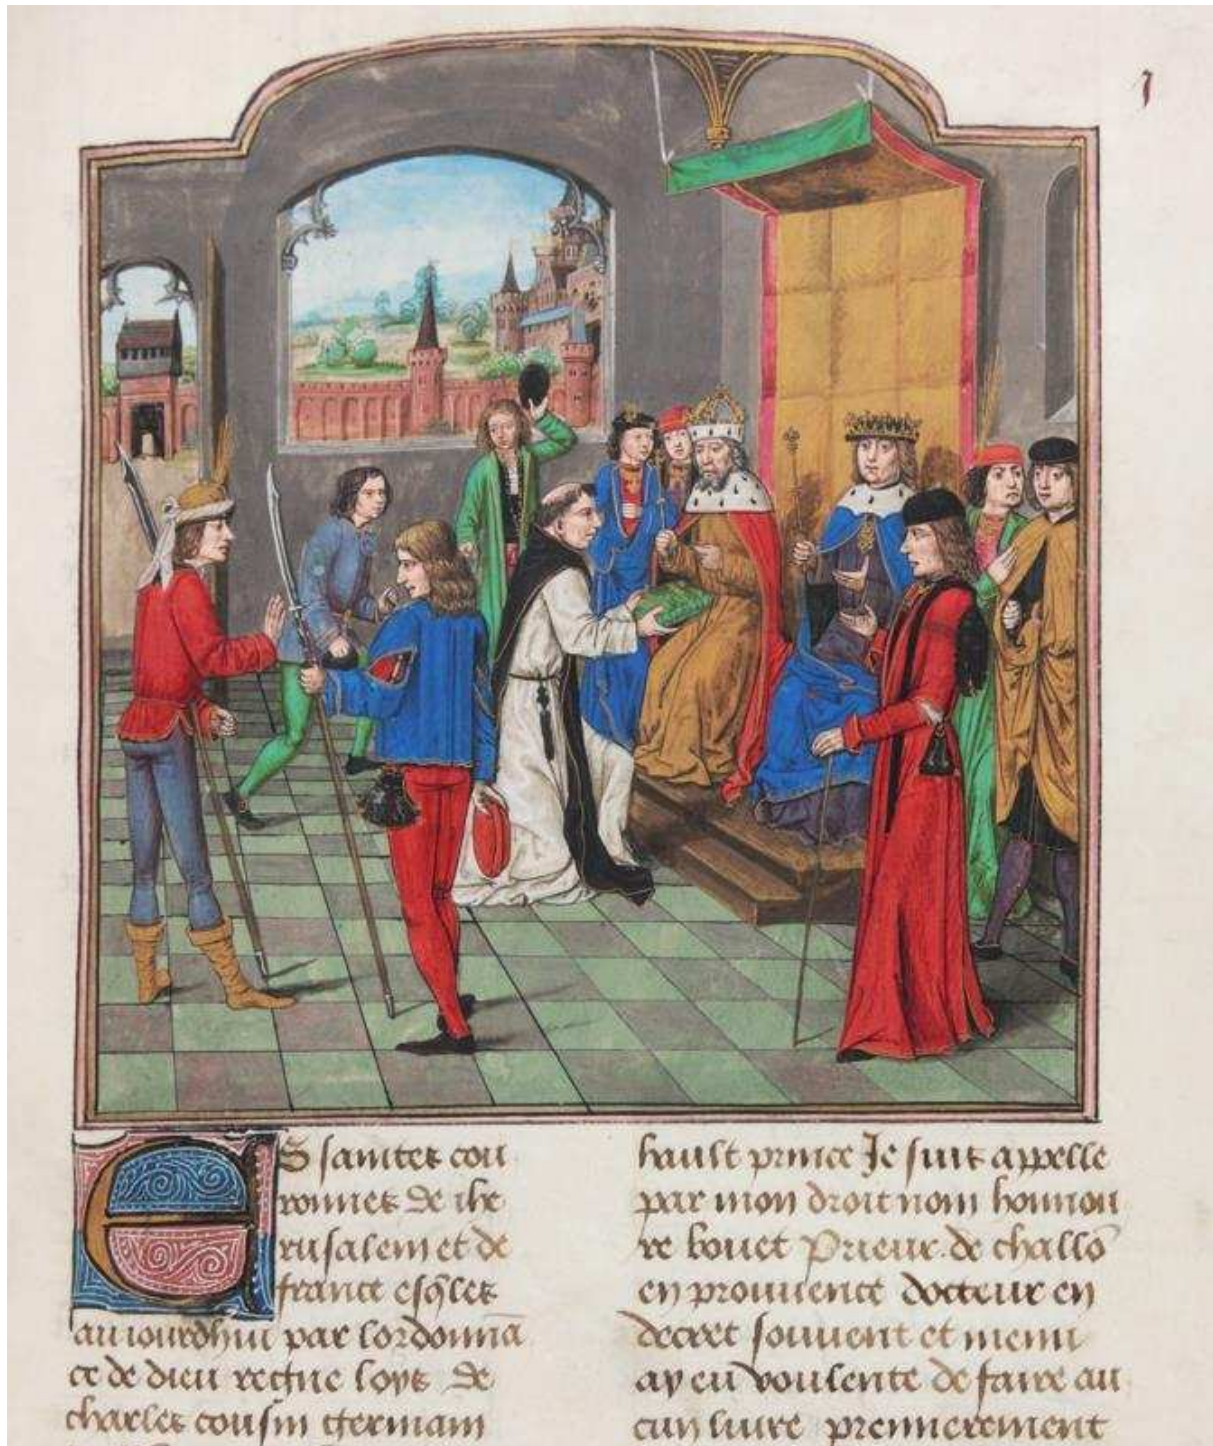 1
ES saintes cou
ronnes de ihe
rusalem et de
france esq̃les
au iourdhui par lordonnã
ce de dieu regne loys de
charles cousin germain
hault prince Je suis appelle
par mon droit nom honnou
re bouet Prieur de challõ
en prouuence docteur en
decret souuent et menu
ay eu voulente de faire au
cun liure premierement